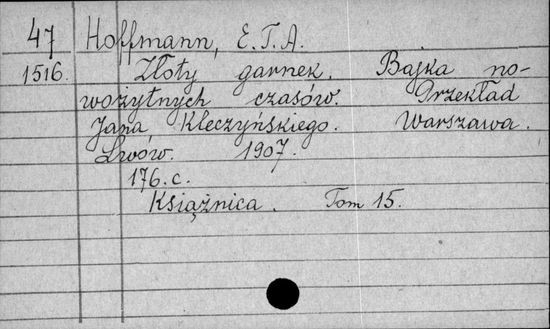 47 Hoffmann, E.T.A.
1516. Złoty garnek. Bajka no-
wożytnych czasów. Przekład
Jana Kleczyńskiego. Warszawa.
Lwów. 1907.
176.c.
Książnica. Tom 15.